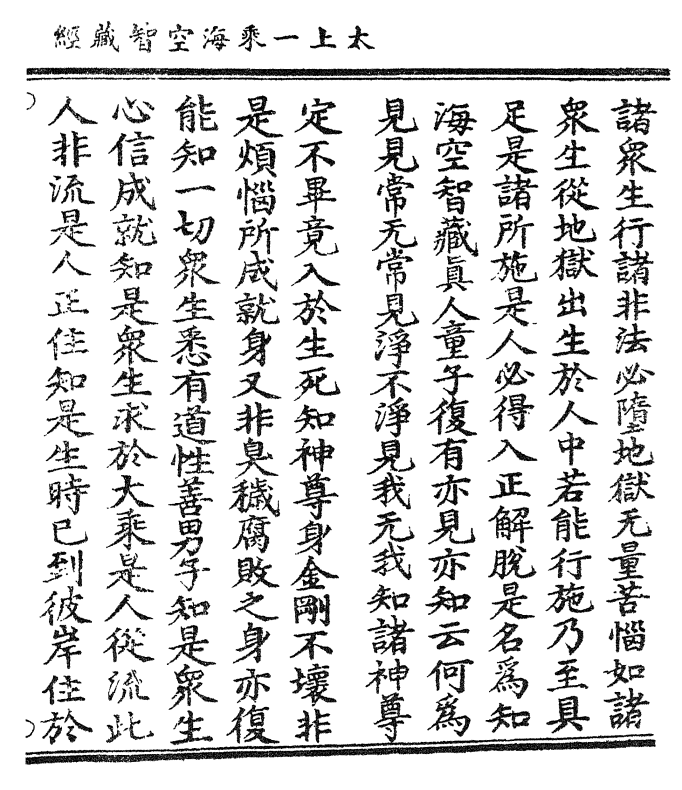 太上一乘海空智藏經
諸衆生行諸非法必墮地獄无量苦惱如諸
衆生從地獄出生於人中若能行施乃至具
足是諸所施是人必得入正解脫是名爲知
海空智藏眞人童子復有亦見亦知云何爲
見見常无常見淨不淨見我无我知諸神尊
定不畢竟入於生死知神尊身金剛不壞非
是煩惱所成就身又非臭穢腐敗之身亦復
能知一切衆生悉有道性善男子知是衆生
心信成就知是衆生求於大乘是人從流此
人非流是人正住知是生時已到彼岸住於